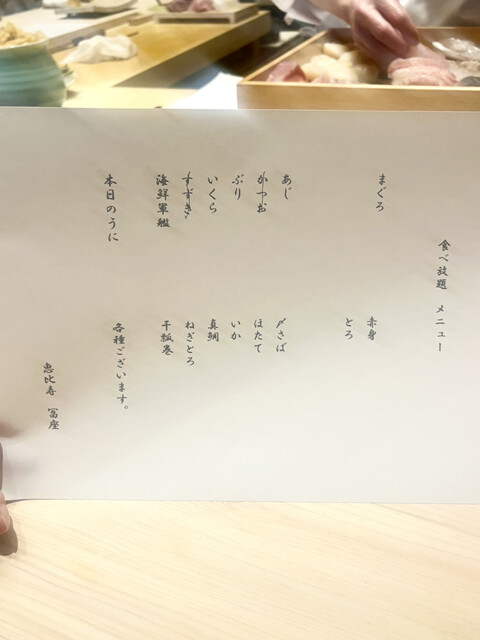 食べ放題 メニュー
まぐろ 赤身
とろ
あじ 〆さば
かつお ほたて
ぶり いか
いくら 真鯛
すずき ねぎとろ
海鮮軍艦 干瓢巻
本日のうに 各種ございます。
恵比寿 冨座